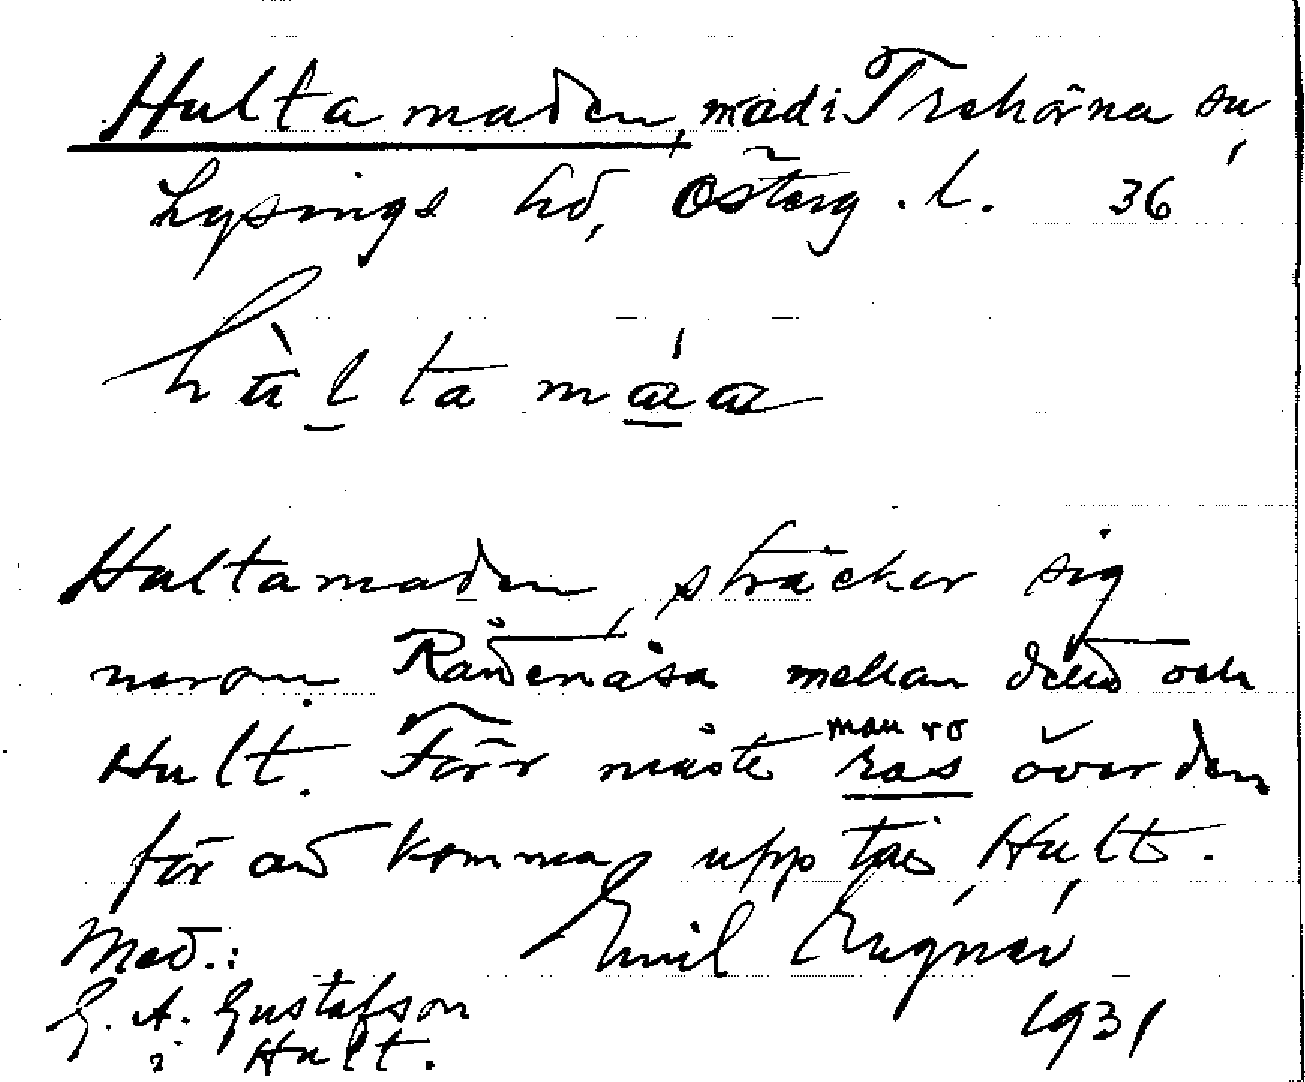 Hultamaden, mad i Trehörna sn,
Lysings hd, Österg. l. 36
hùlta máa
Hultamaden, sträcker sig
norom Rådenäsa mellan detta och
Hult. Förr måste man ro
ros över den
för att komma upp till Hult.
Emil Lugnér
Med.:
G. A. Gustafson
i Hult.
1931